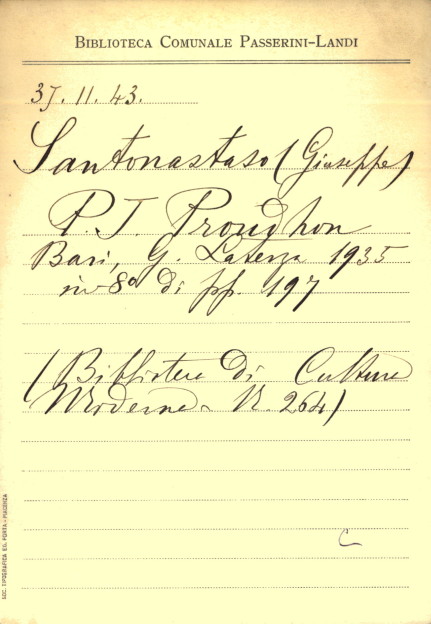 BIBLIOTECA COMUNALE PASSERINI-LANDI
3J. 11. 43.
Santonastaso (Giuseppe)
P. J. Proudhon
Bari, G. Laterza 1935
in 8º di pp. 197
(Biblioteca di Cultura
Moderna - N. 264)
C
SOC. TIPOGRAFICA ED. PORTA - PIACENZA